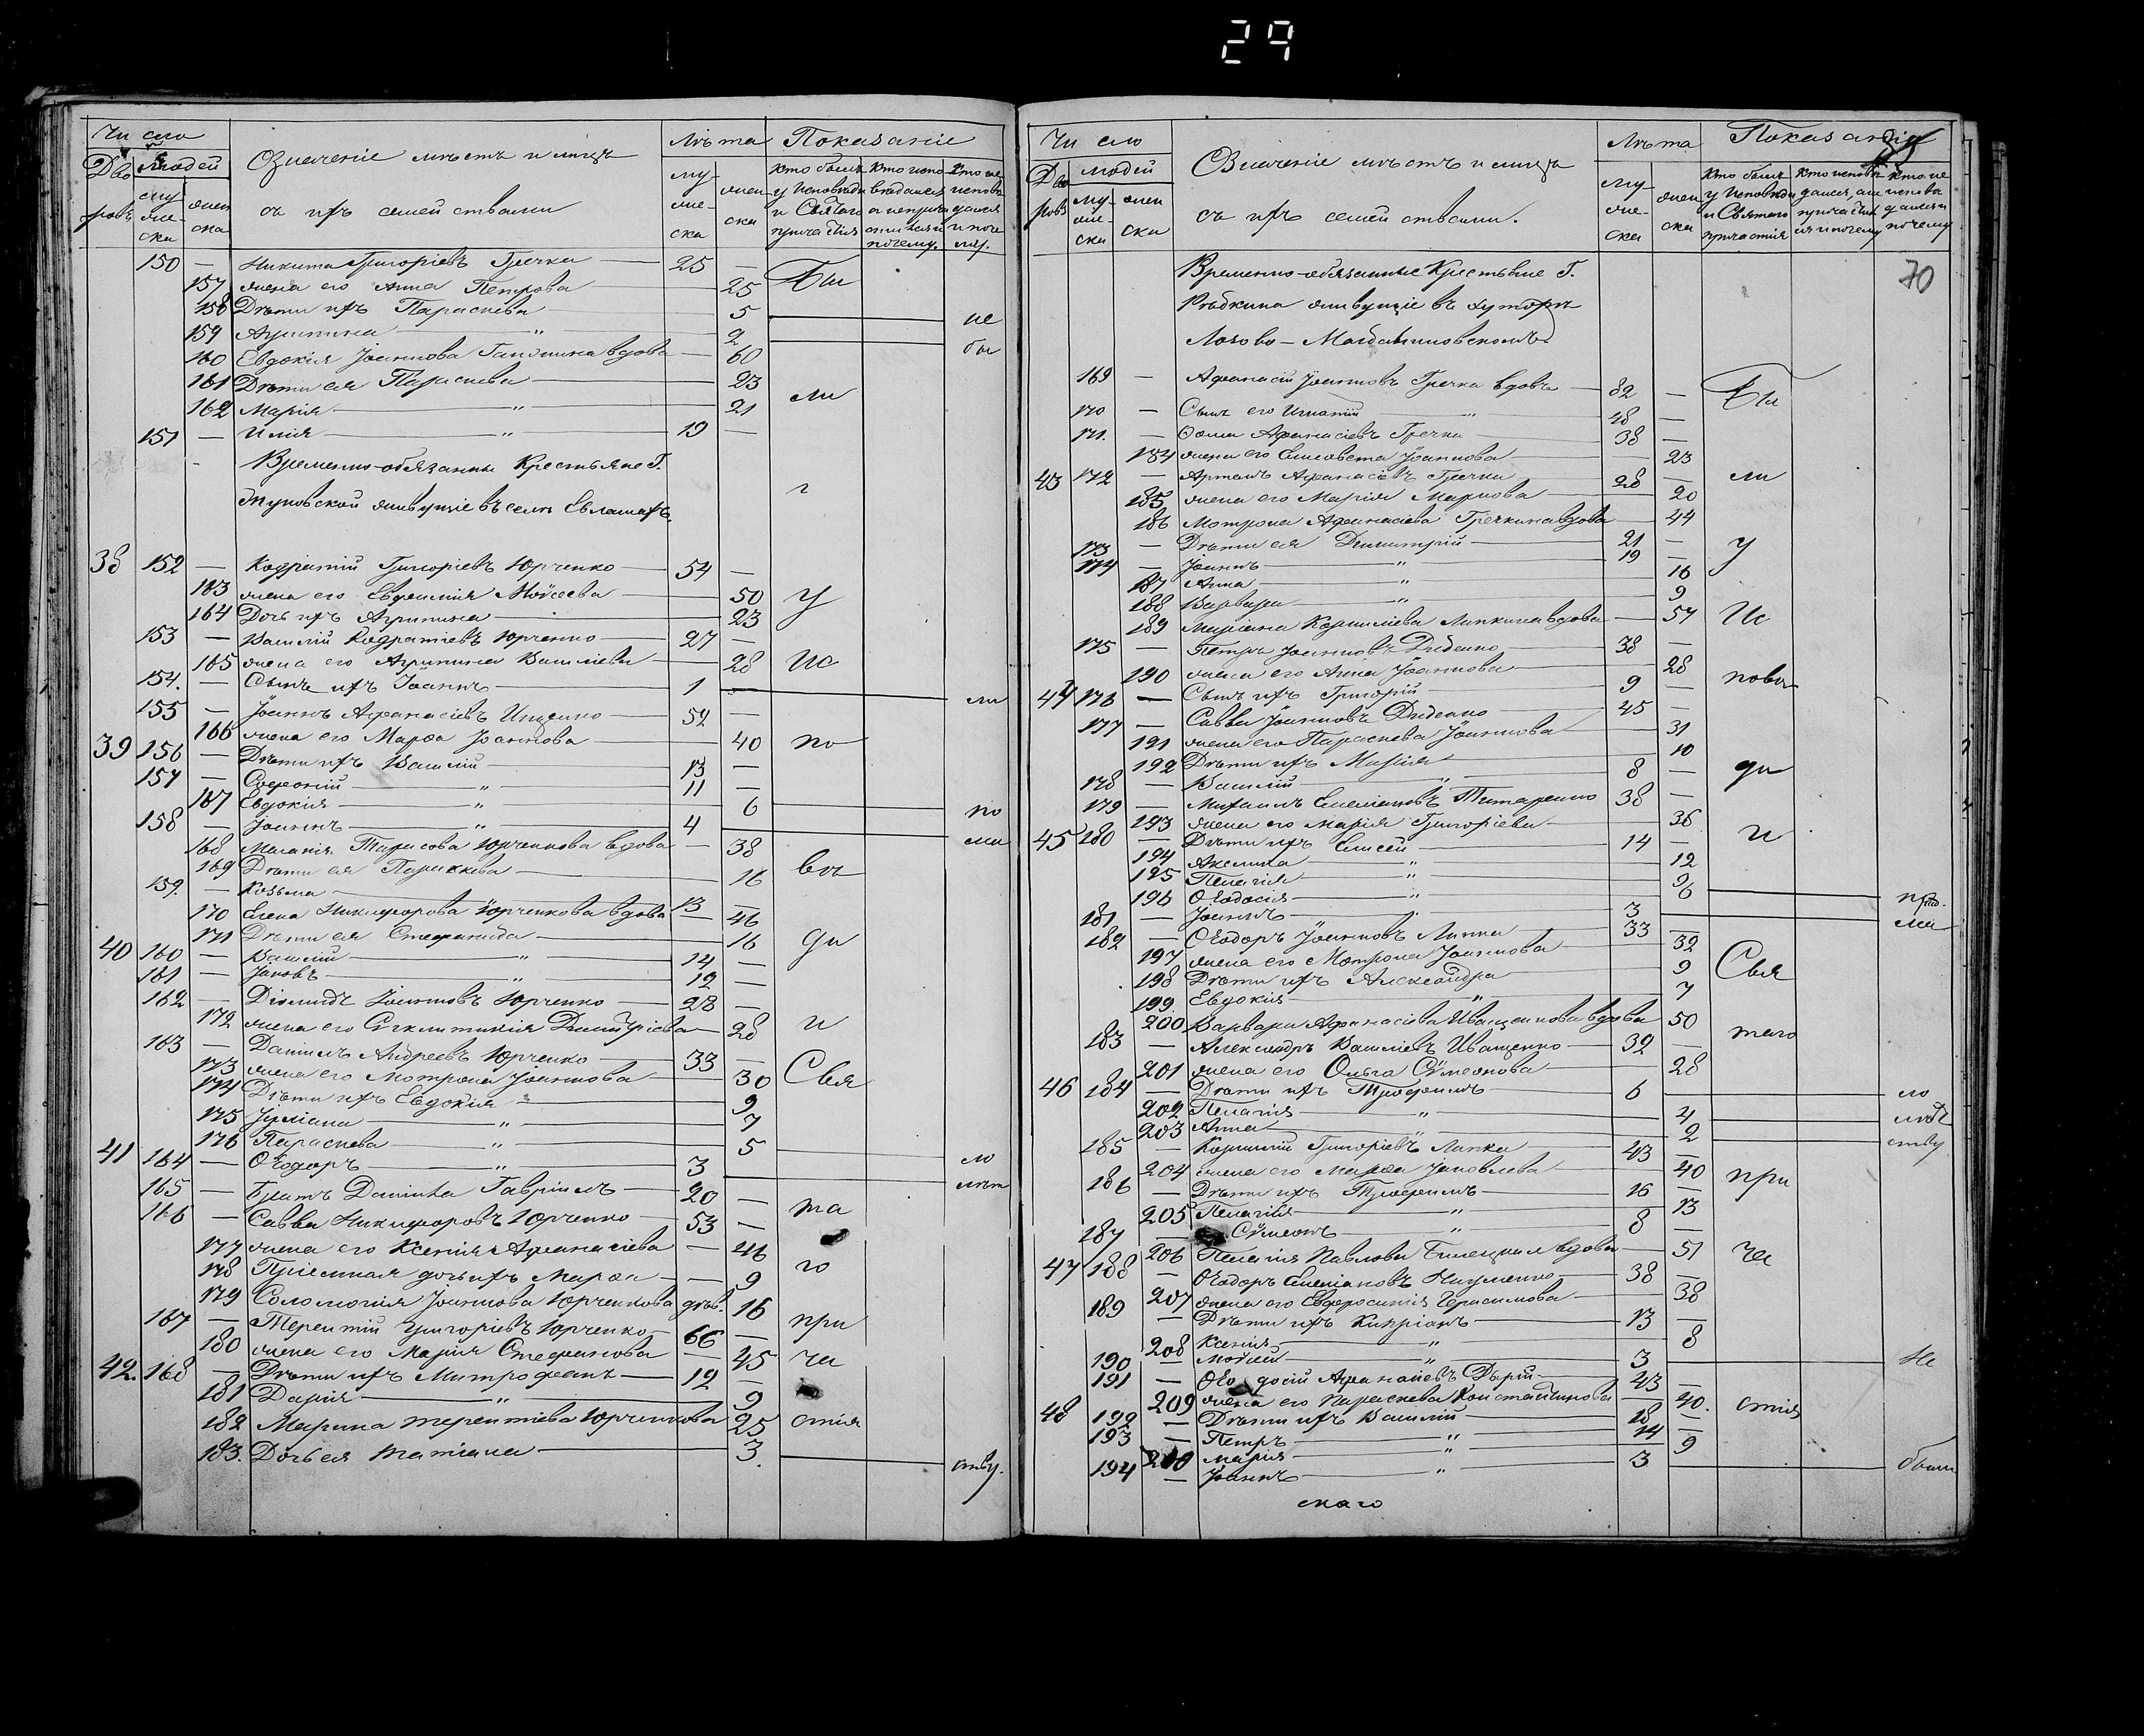 29
Число
Дворовъ
Людей
мужеска
женска
Означеніе мѣстъ и лицъ
съ ихъ семействами
Лѣта
мужеска
женска
Показаніе
кто былъ у Исповѣди и Святаго причастія
кто исповѣдался а непричастился и почему.
кто не исповѣдался и почему.
150 — Никита Григоріевъ Гречка — 25 — Бы
157 жена его Анна Петрова 25
158 Дѣти ихъ Параскева 5 не
159 Агрипина " 2 бы
160 Евдокія Іоаннова Гапонина вдова 60
161 Дѣти ея Параскева 23 ли
162 Марія " 21
151 — Илія " 19 —
Временно-обязанные Крестьяне Г.
живущіе въ селѣ Евлашахъ.
38 152 — Кодратій Григоріевъ Юрченко 54 —
163 жена его Евфимія Моѵсеева 50 у
164 Дочь ихъ Агрипина 23
153 — Василій Кодратіевъ Юрченко 27 —
165 жена его Агрипина Василіева 28 Ис
154. — Сынъ ихъ Іоаннъ 1 — ли
155 — Іоаннъ Афанасіевъ Ищенко 52 —
166 жена его Марѳа Іоаннова 40 по
39 156 — Дѣти ихъ Василій 13 —
157 — Софоній " 11 —
167 Евдокія " 6 по
158 — Іоаннъ " 4 ма
168 Меланія Тарасова Юрченкова вдова — 38
169 Дѣти ея Параскева 16 вѣ
159. — Козьма 13 —
170 Елена Никифорова Юрченкова вдова — 46
171 Дѣти ея Стефанида 16 ди
40 160 — Василій " 14 —
161 — Іаковъ " 12 —
162 — Діомидъ Іоанновъ Юрченко 28 —
172 жена его Сѵнклитикія Димитріева 28 и
163 — Даніилъ Андреевъ Юрченко 33 —
173 жена его Мотрона Іоаннова 30 Свя
174 Дѣти ихъ Евдокія " 9
175 Іуліана " 7
176 Параскева " 5 ло
41 164 — Ѳеодоръ " 3 лѣт
165 — Братъ Даніила Гавріилъ 20 — та
166 — Савва Никифоровъ Юрченко 53 —
177 жена его Ксенія Афанасіева — 46 го
178 Пріемная дочь ихъ Марѳа — 9
179 Соломонія Іоаннова Юрченкова дѣв. 16
167 — Терентій Григоріевъ Юрченко 66 — при
180 жена его Марія Стефанова — 45 ча
42. 168 — Дѣти ихъ Митрофанъ 12 —
181 Дарія " 9
182 Марина Терентіева Юрченкова 25 стія
183. Дочь ея Татіана 3. ству.
Число
Дворовъ
людей
мужеска
женска
Означеніе мѣстъ и лицъ
съ ихъ семействами.
Лѣта
мужеска
женска
Показаніе
кто былъ у Исповѣди и Святаго причастія
кто исповѣдался, а не причастился и почему
кто не исповѣдался и почему
70
Временно-обязанные Крестьяне Г.
Рѣдкина живущіе въ хуторѣ
Лозово-Магдалиновскомъ
169 — Афанасій Іоанновъ Гречка вдовъ 82 — Бы
170 — Сынъ его Игнатій " 48 —
171. — Ѳома Афанасіевъ Гречка 38 —
184 жена его Елисавета Іоаннова 23
43 172 — Артемъ Афанасіевъ Гречка 28 — ли
185 жена его Марія Маркова 20
186 Мотрона Афанасіева Гречкина вдова 44
173 — Дѣти ея Димитрій 21 — у
174 — Іоаннъ " 19 —
187 Анна " 16
188 Варвара " 9
189 Маріана Корниліева Липкина вдова 57 Ис
175 — Петръ Іоанновъ Диденко 38 —
190 жена его Анна Іоаннова 28
44 176 — Сынъ ихъ Григорій 9 — повѣ
177 — Савва Іоанновъ Диденко 45 —
191 жена его Параскева Іоаннова 31
192 Дѣти ихъ Марія 10 ди
178 — Василій " 8 —
179 — Михаилъ Емеліановъ Титаренко 38 —
193 жена его Марія Григоріева 36 и
45 180 — Дѣти ихъ Елисей 14 —
194 Акилина " 12
195 Пелагія " 9
196 Ѳеодосія " 6
181 — Іоаннъ 3 ма
182 — Ѳеодоръ Іоанновъ Липка 33 —
197 жена его Мотрона Іоаннова 32
198 Дѣти ихъ Александра 9 Свя
199 Евдокія " 7
200 Варвара Афанасіева Иващенкова вдова 50
183 — Александръ Василіевъ Иващенко 32 — таго
201 жена его Ольга Сѵмеонова 28
46 184 — Дѣти ихъ Трофимъ 6 ло
202 Пелагія " 4
203 Анна 2 ству
185 — Корнилій Григоріевъ Липка 43 —
204 жена его Марѳа Іаковлева 40 при
186 — Дѣти ихъ Трофимъ 16 —
205 Пелагія " 13
187 — Сѵмеонъ " 8 —
206 Пелагія Павлова Билецкая вдова 51 ча
47 188 — Ѳеодоръ Емеліановъ Науменко 38 —
207 жена его Евфросинія Герасимова 38
189 — Дѣти ихъ Кипріанъ 13 —
208 Ксенія " 8
190 — Моѵсей " 3 Не
191 — Ѳеодосій Афанасіевъ 43 —
48 209 жена его Параскева Константинова 40. стія
192 — Дѣти ихъ Василій 18 —
193 — Петръ " 14 —
210 Марія " 9
194 — Іоаннъ " 3 были
скаго